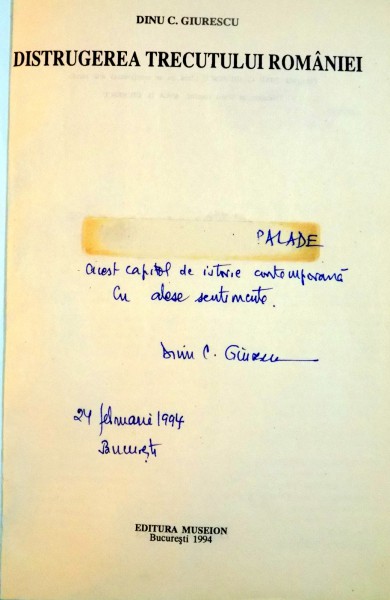 DINU C. GIURESCU
DISTRUGEREA TRECUTULUI ROMÂNIEI
PALADE
acest capitol de istorie contemporană
Cu alese sentimente.
Dinu C. Giurescu
24 februarie 1994
București
EDITURA MUSEION
București 1994